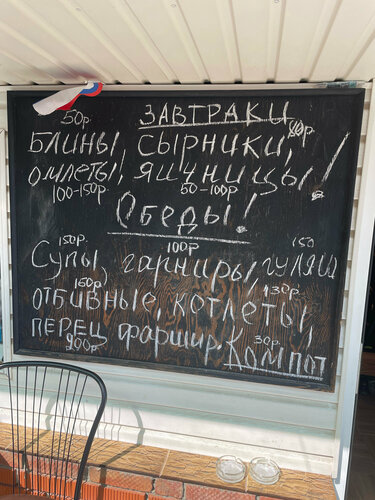 50р. ЗАВТРАКИ
БЛИНЫ, СЫРНИКИ,
ОМЛЕТЫ, ЯИЧНИЦЫ!
100-150р. 50-100р
Обеды!
150р. 100р 150
Супы, гарниры, гуляш
160р 130р.
ОТБИВНЫЕ, КОТЛЕТЫ,
ПЕРЕЦ фаршир, КОМПОТ
200р 30р.